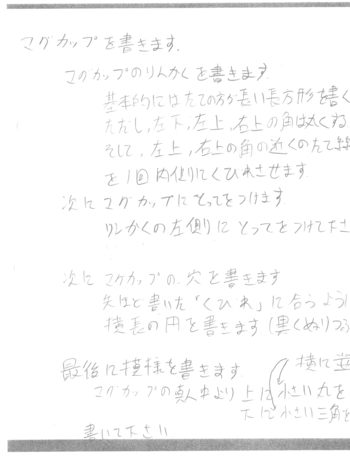 マグカップを書きます.
マグカップのりんかくを書きます
基本的にはたての方が長い長方形を書く
ただし,左下,左上,右上の角は丸くする
そして,左上,右上の角の近くのたて線
を1回内側にくびれさせます
次にマグカップにとってをつけます
りんかくの左側にとってをつけて下さ
次にマグカップの穴を書きます
先ほど書いた「くびれ」に合うよう
横長の円を書きます(黒くぬりつぶ
最後に模様を書きます 横に並
マグカップの真ん中より上に小さい丸を
下に小さい三角を
書いて下さい